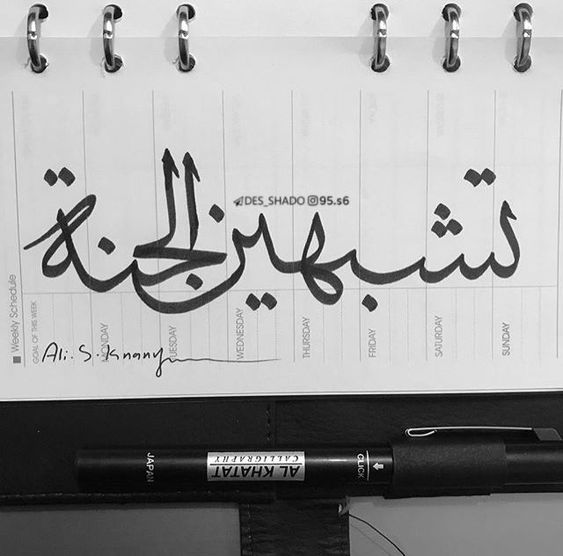 تشبهين الجنة
DES_SHADO 95.s6
Weekly Schedule
GOAL OF THIS WEEK
MONDAY
TUESDAY
WEDNESDAY
THURSDAY
FRIDAY
SATURDAY
SUNDAY
Ali.S.Knany
JAPAN
AL KHATAT
CALLIGRAPHY
CLICK